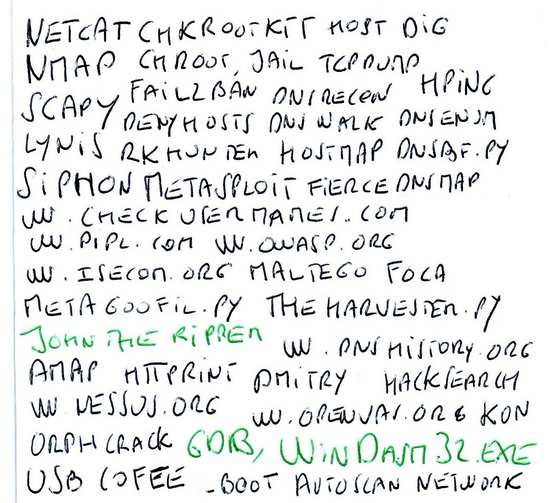 NETCAT CHKROOTKIT HOST DIG
NMAP CHROOT, JAIL TCPDUMP
SCAPY FAIL2BAN DNSRECON HPING
DENYHOSTS DNSWALK DNSENUM
LYNIS RKHUNTER HOSTMAP DNSBF.PY
SIPHON METASPLOIT FIERCE DNSMAP
W.CHECK USERNAMES..COM
W.PIPL.COM W.OWASP.ORG
W.ISECOM.ORG MALTEGO FOCA
METAGOOFIL.PY THE HARVESTER.PY
JOHN THE RIPPER W.DNSHISTORY.ORG
AMAP HTTPRINT DMITRY HACKSEARCH
W.NESSUS.ORG W.OPENVAS.ORG KON
ORPHCRACK GDB, WINDASM32.EXE
USB COFEE -BOOT AUTOSCAN NETWORK